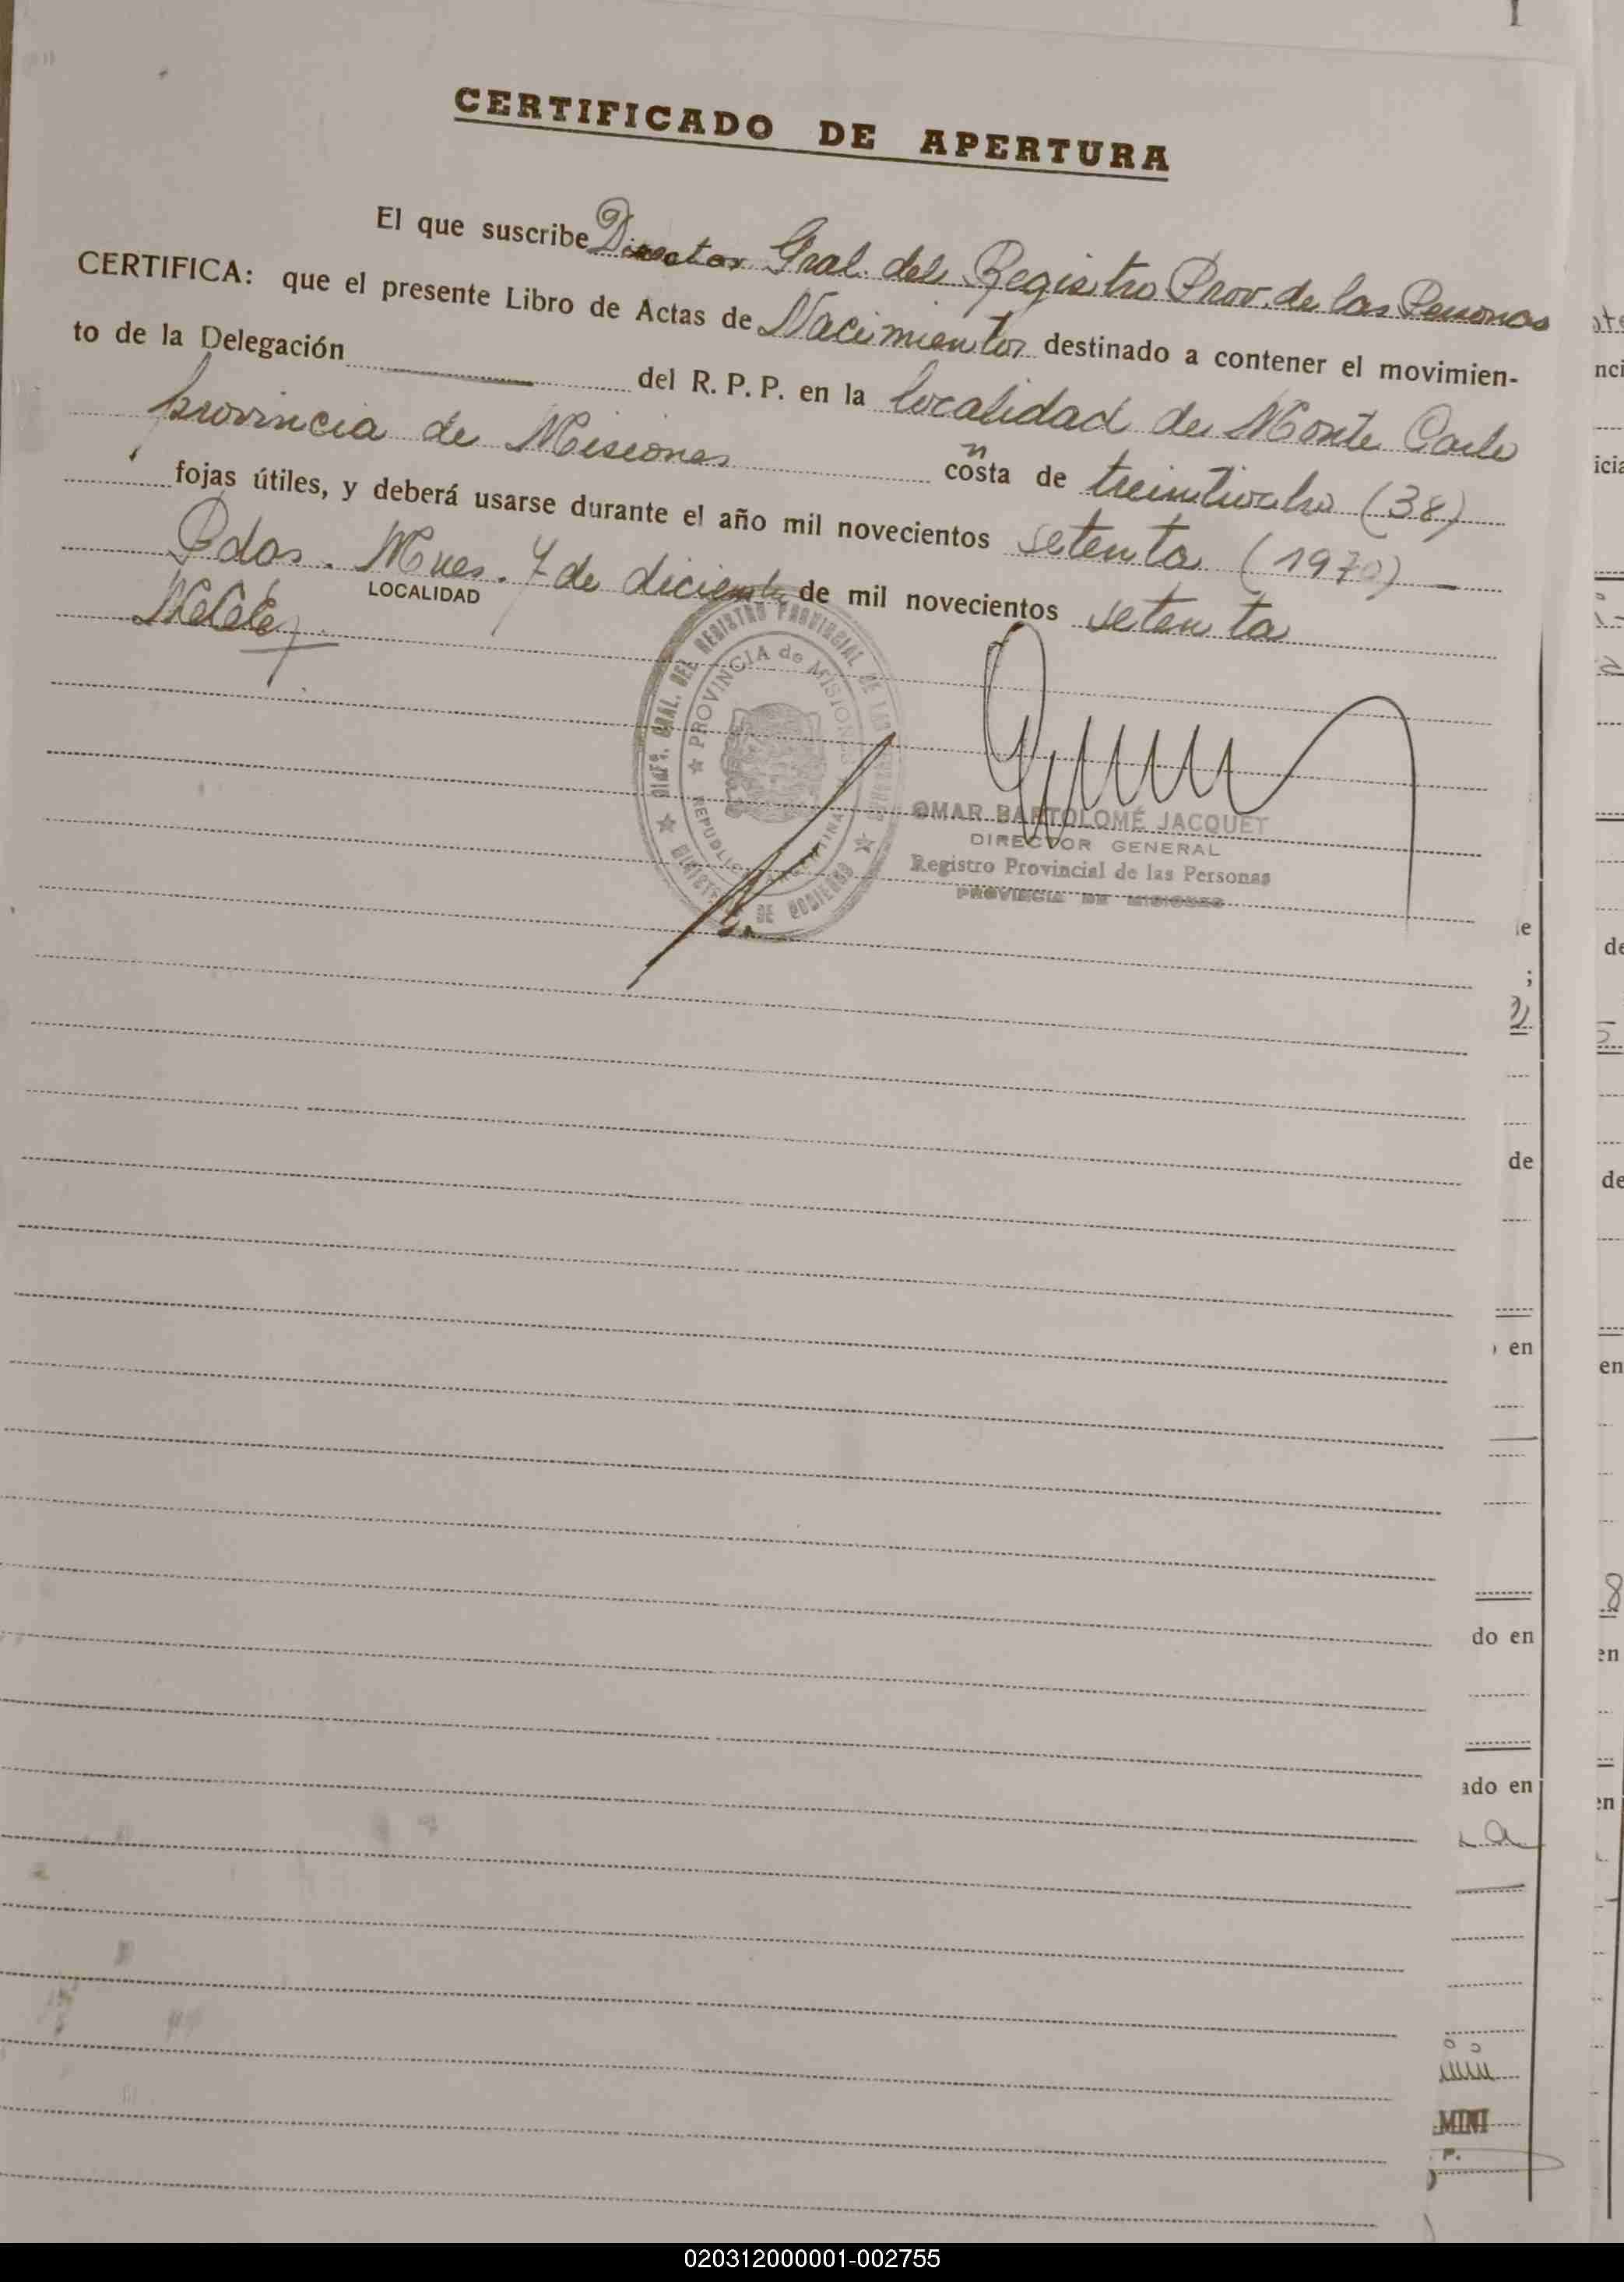 I
CERTIFICADO DE APERTURA
El que suscribe Director Gral. del Registro Prov. de las Personas
CERTIFICA: que el presente Libro de Actas de Nacimientos destinado a contener el movimien-
to de la Delegación del R. P. P. en la localidad de Monte Carlo
provincia de Misiones consta de treintiocho (38)
fojas útiles, y deberá usarse durante el año mil novecientos setenta (1970) —
Pdas. Mnes. 7 de diciembre de mil novecientos setenta
LOCALIDAD
DIREC. GRAL. DEL REGISTRO PROVINCIAL DE LAS PERSONAS
PROVINCIA de MISIONES
REPUBLICA ARGENTINA
MINISTERIO DE GOBIERNO
OMAR BARTOLOMÉ JACQUET
DIRECTOR GENERAL
Registro Provincial de las Personas
PROVINCIA DE MISIONES
de
de
de
en
en
do en
en
ado en
en
MINI
020312000001-002755